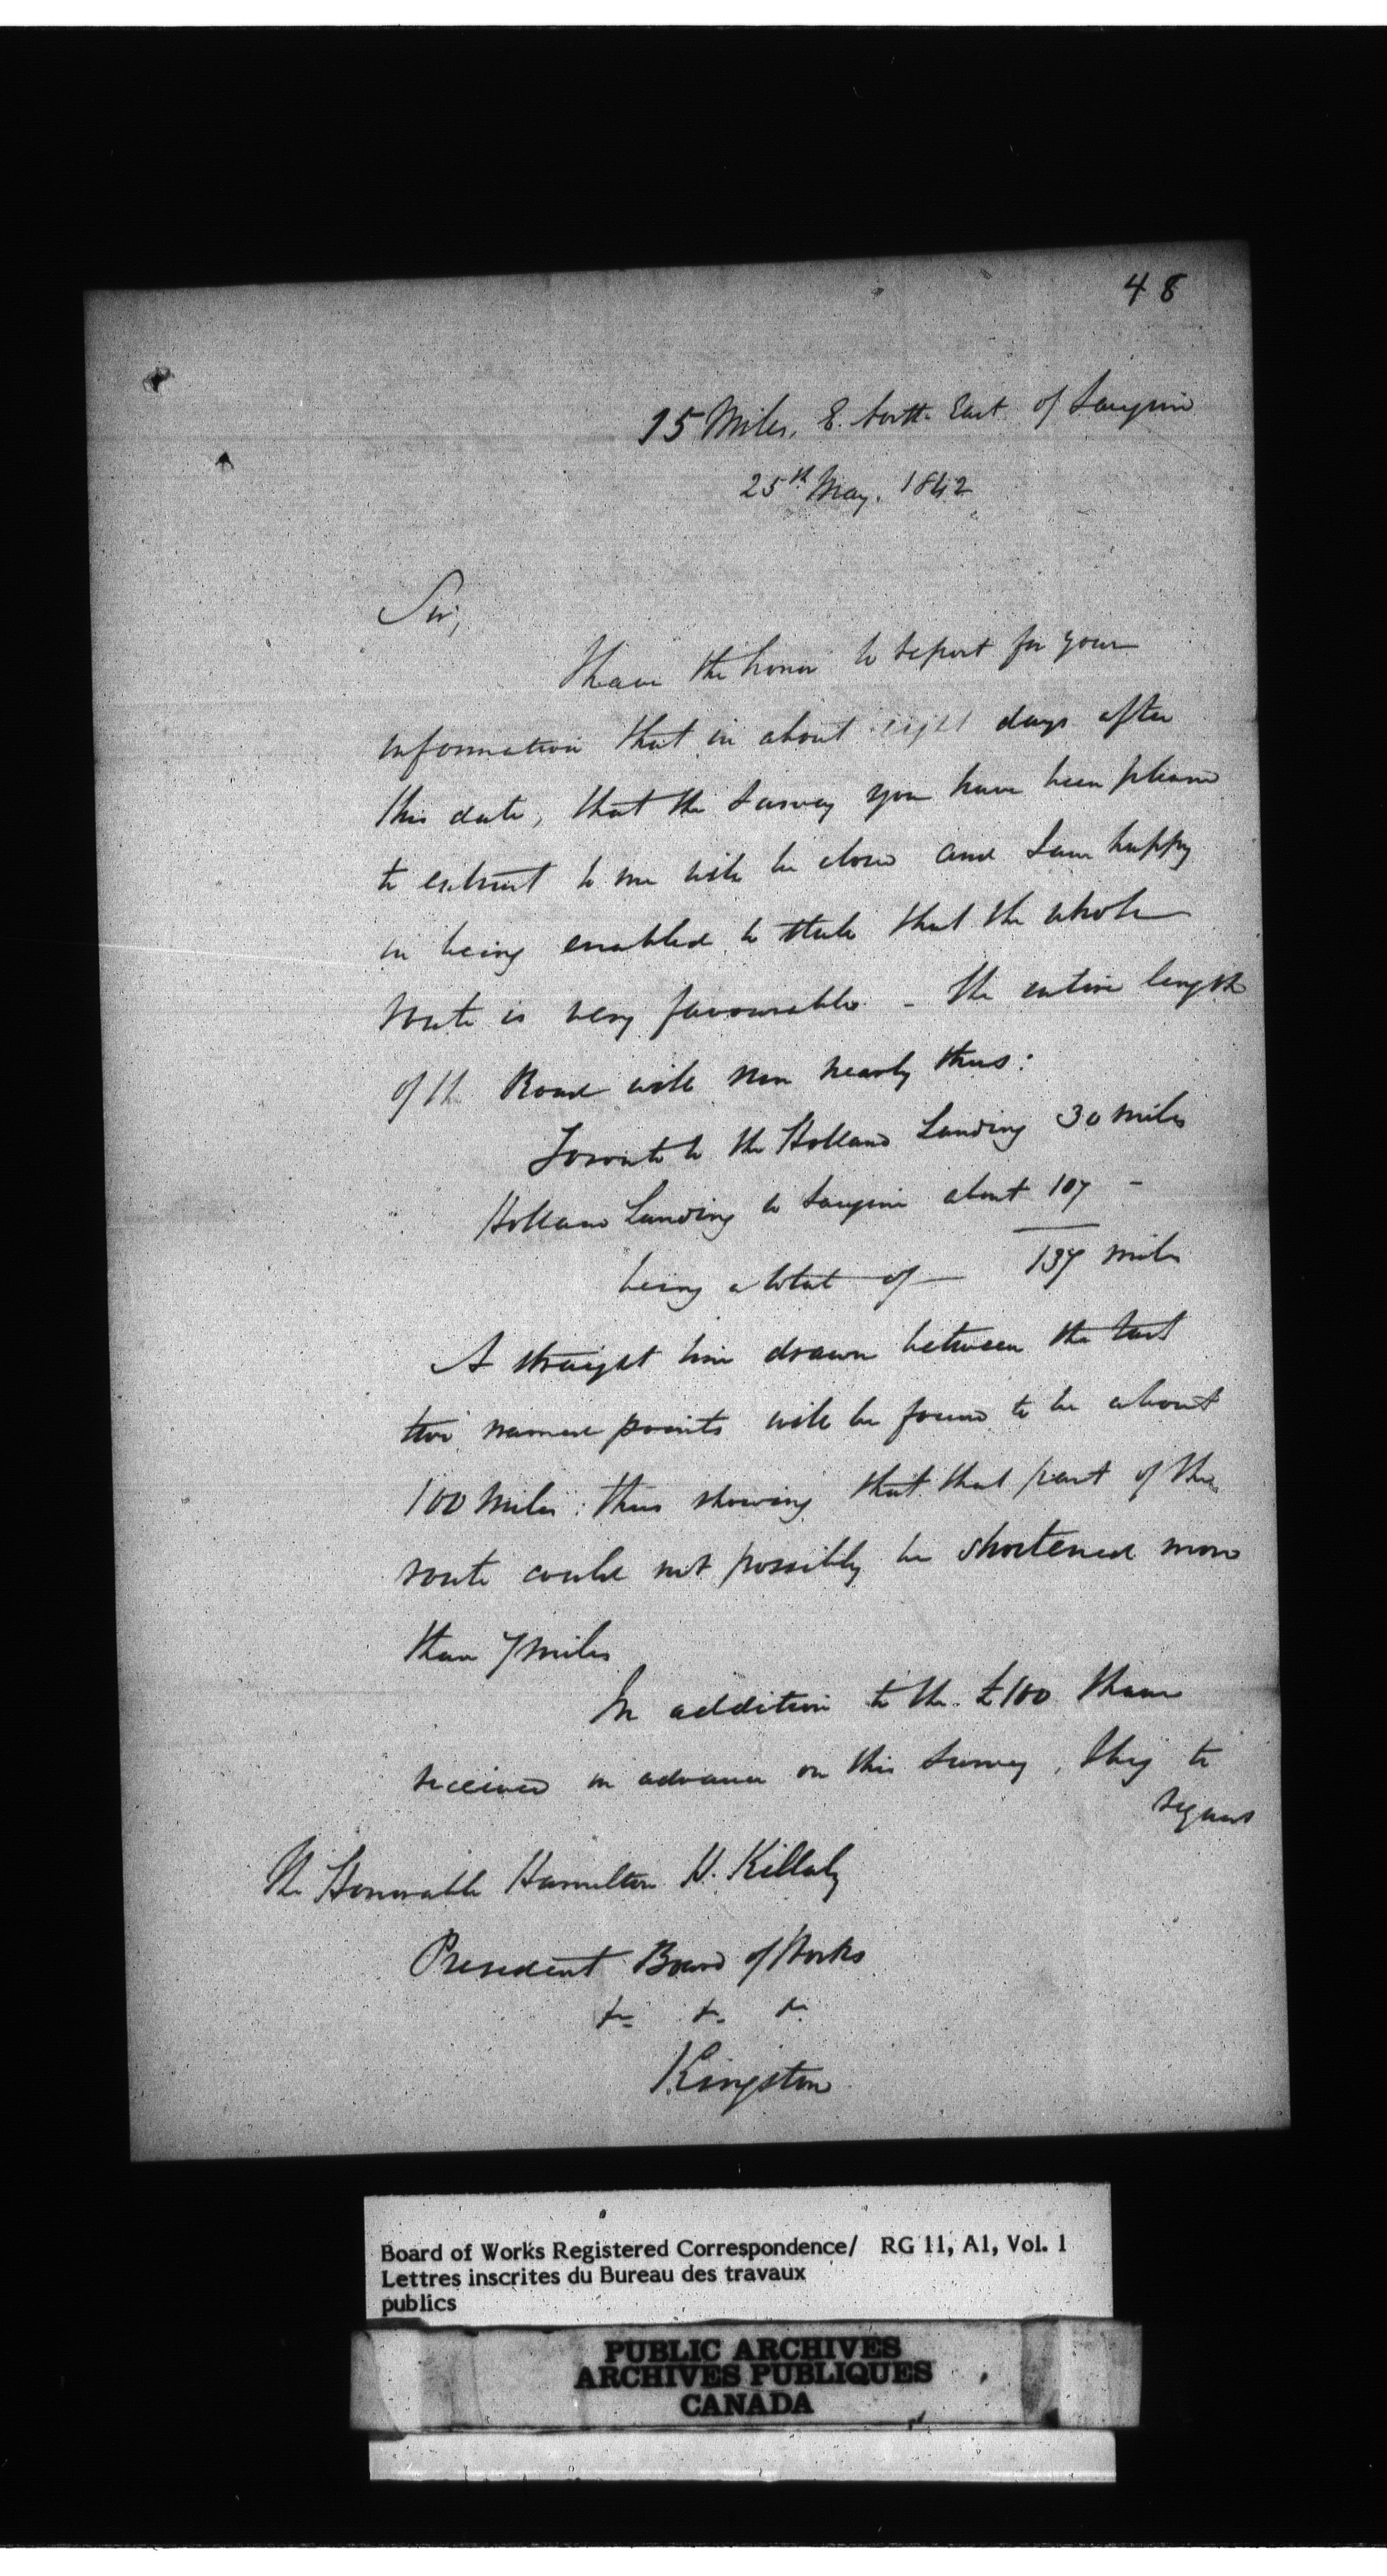 48
15 Miles, E. South East of Saugine
25th May. 1842
Sir,
I have the honor to report for your
information that in about eight days after
this date, that the Survey you have been pleased
to entrust to me will be closed and I am happy
in being enabled to state that the whole
route is very favourable - the entire length
of the Road will run nearly thus:
Toronto to the Holland Landing 30 miles
Holland Landing to Saugine about 107 -
being a total of 137 miles
A straight line drawn between the last
two named points will be found to be about
100 Miles: thus showing that that part of the
route could not possibly be shortened more
than 7 miles
In addition to the £100 I have
received in advance on this Survey, I beg to
request
The Honorable Hamilton H. Killaly
President Board of Works
&c &c &c
Kingston
Board of Works Registered Correspondence/ RG 11, A1, Vol. 1
Lettres inscrites du Bureau des travaux
publics
PUBLIC ARCHIVES
ARCHIVES PUBLIQUES
CANADA